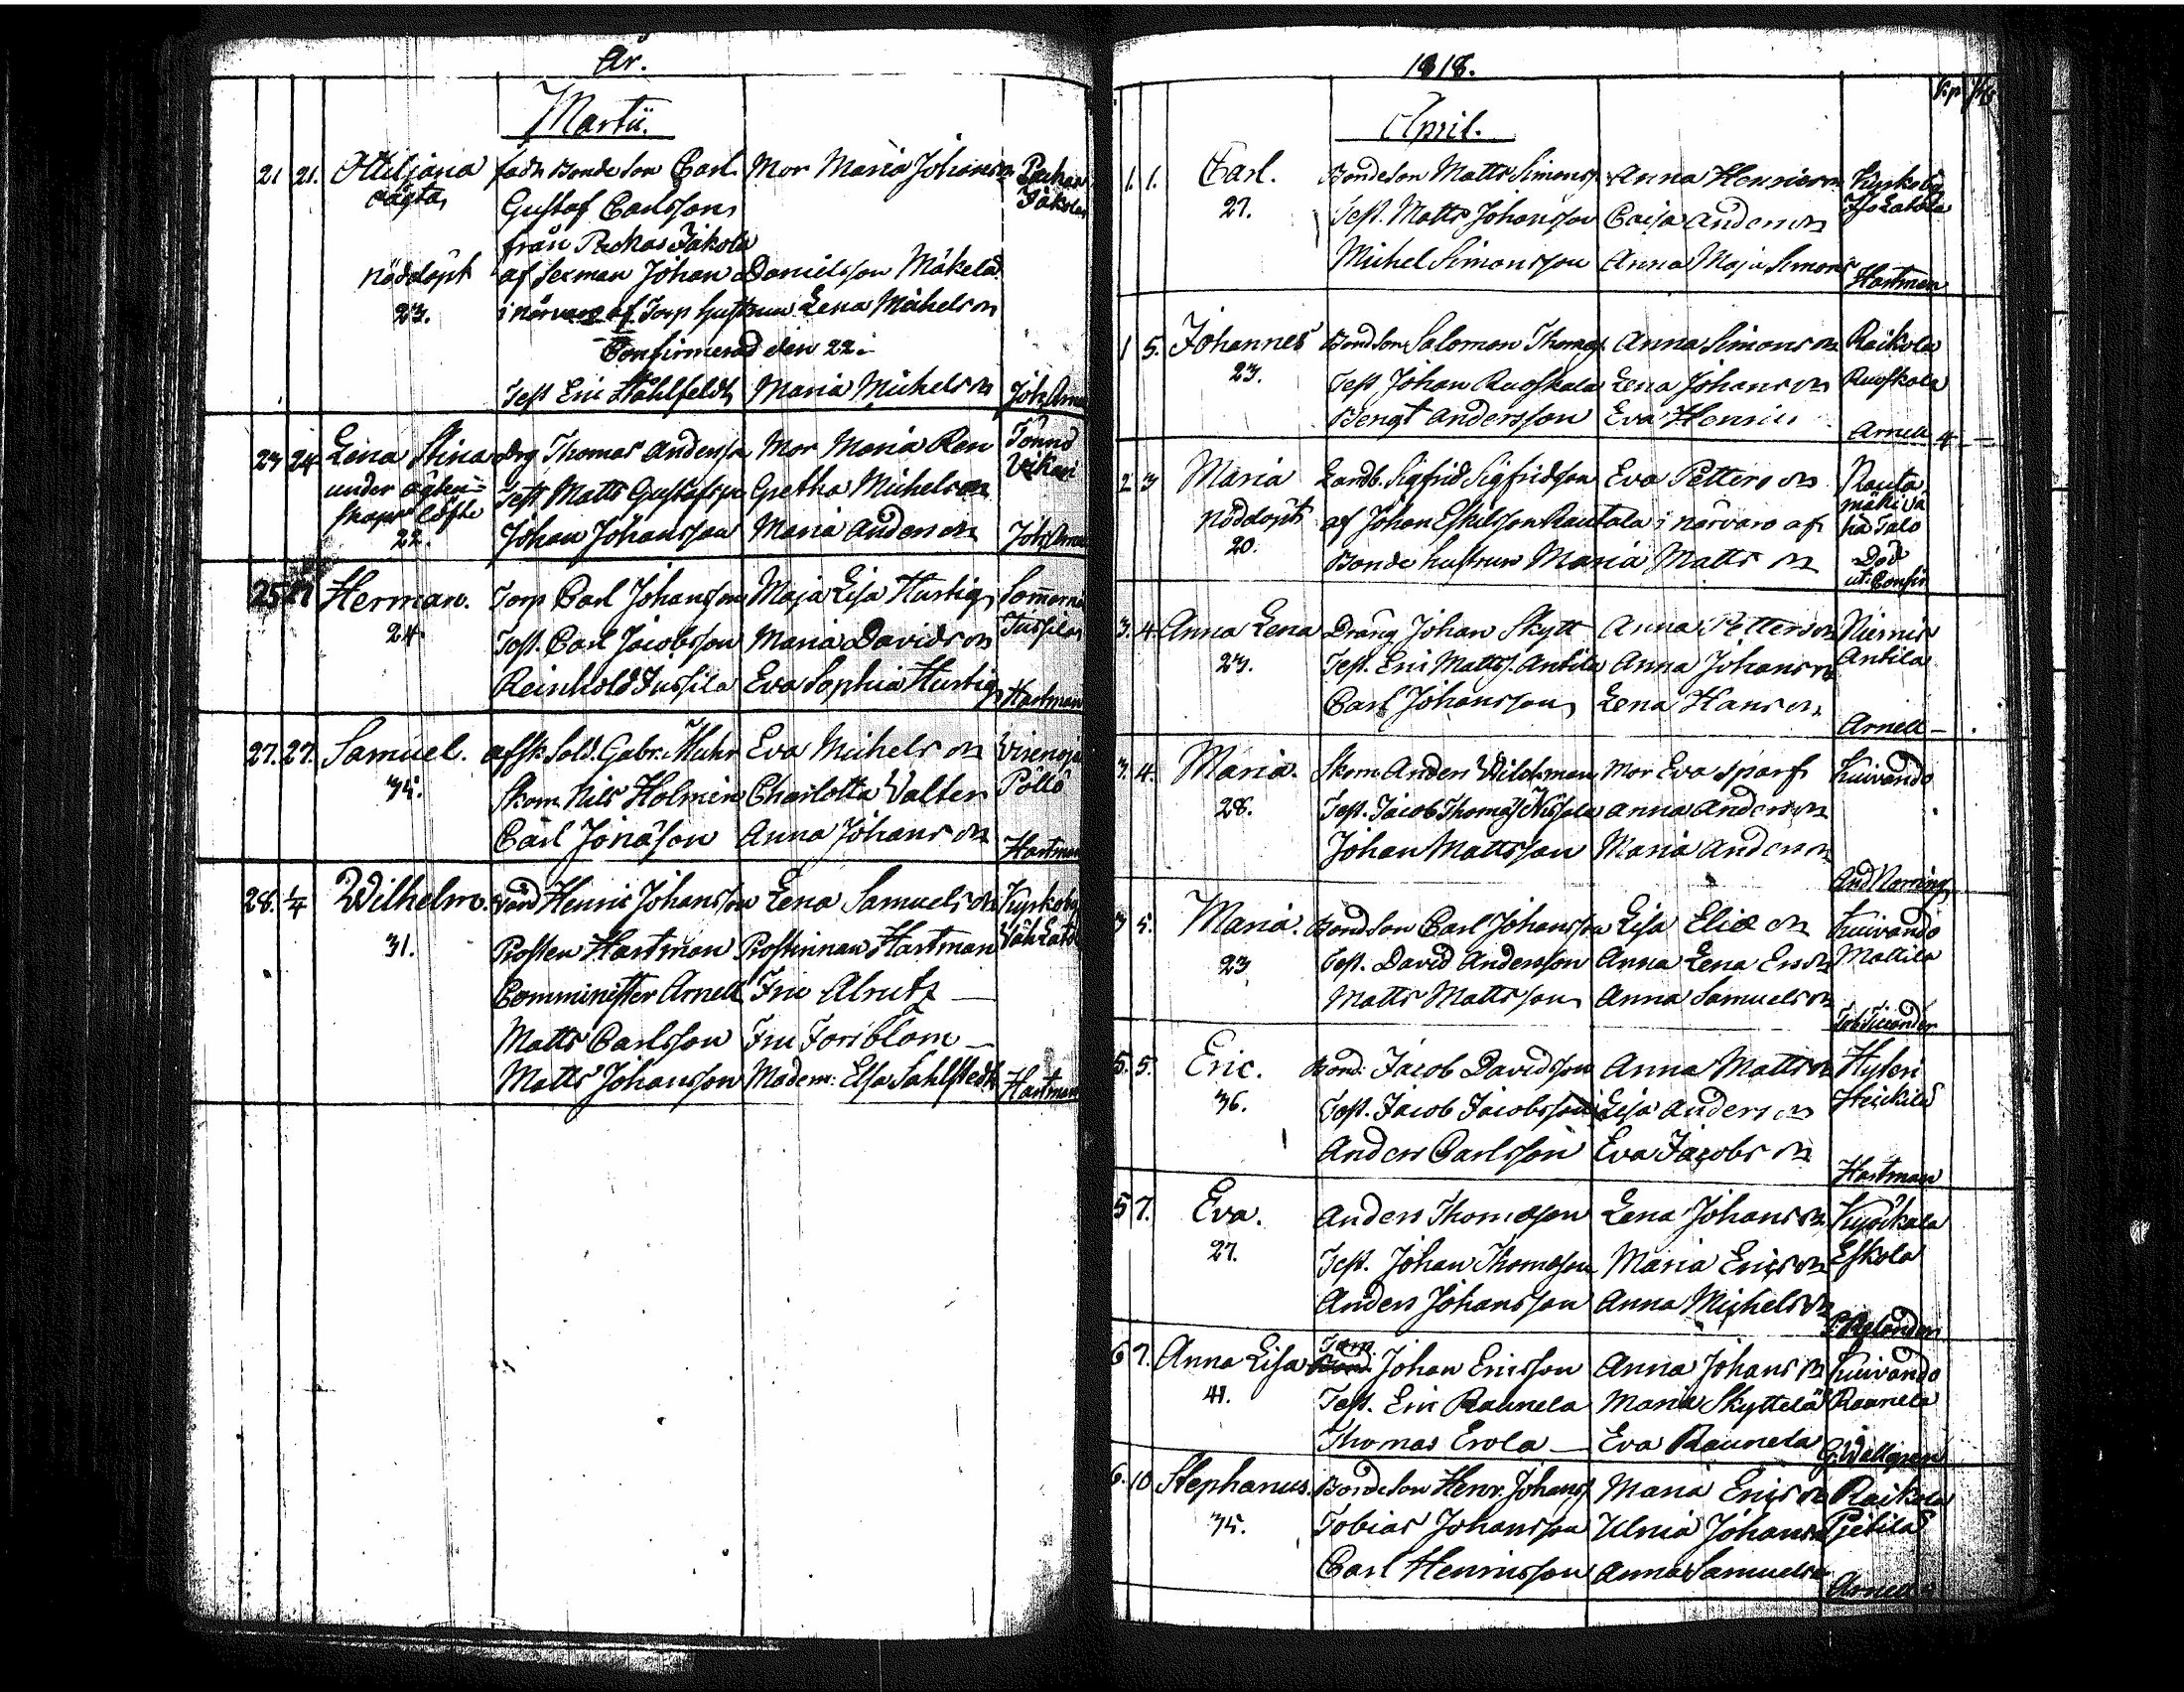 År.
Martii.
21 21. Ottiljana fadr Bonde Son Carl Mor Maria Johans dr
oägta Gustaf Carlsson Jakola
från Jakola
nöddöpt af Sexman Johan Danielsson Mäkelä
23. i närvaro af Torp hustrun Lena Michels dr
Confirmerad den 22.
Test Eric Ståhlfeldt Maria Michels dr
23 24 Lena Stina drg Thomas Andersson Mor Maria Ren
under ägten= Test Matts Gustafsson Gretha Michels dr
skaps löfte
22. Johan Johansson Maria Anders dr
25 27 Herman. Torp Carl Johansson Maja Lisa Hurtig
24. Test. Carl Jacobsson Maria Davids dr Jussila
Reinhold Jussila Eva Sophia Hurtig Hartman
27. 27. Samuel. afsk. Sold. Gabr. Muhr Eva Michels dr Virenoja
35. Skom. Nils Holmén Charlotta Valter Pöllö
Carl Jonasson Anna Johans dr Hartman
28. 1/4 Wilhelm. Bond Henric Johansson Lena Samuels dr Kyrkoby
31. Prosten Hartman Prostinnan Hartman
Comminister Arnell Fru Alrutz —
Matts Carlsson Fru Forsblom —
Matts Johansson Madem: Elsa Sahlstedt Hartman
1818.
April.
1. 1. Carl. Bondeson Matts Simonss. Anna Henrics dr Kyrkoby
27. Test. Matts Johansson Caisa Anders dr
Michel Simonsson Anna Maja Simons
Hartman
1 5. Johannes Bondson Salomon Thomass. Anna Simons dr Raikola
23. Test Johan Ruoskala Lena Johans dr Ruoskala
Bengt Andersson Eva Henrics
Arnell
2 3 Maria Landb. Sigfrid Sigfridsson Eva Petters dr Rauta
mäki Vä
nöddöpt af Johan Eskilsson Rautala i närvaro af hä Talo
20. Bonde hustrun Maria Matts dr Död
ut. Confir
3. 4. Anna Lena Dräng Johan Skytt Anna Petters dr Niemis
23. Test. Eric Mattss. Antila Anna Johans dr Antila
Carl Johansson Lena Hans dr
Arnell —
3. 4. Maria. Skom. Anders Wildtman Mor Eva Sparf Kuivando
28. Test. Jacob Thomass. Nissola Anna Anders dr
Johan Mattsson Maria Anders dr
And Norring
3 5. Maria. Bondson Carl Johansson Lisa Eliæ dr Kuivando
23 Test. David Andersson Anna Lena Ers dr Mattila
Matts Mattsson Anna Samuels dr
5. 5. Eric. Bond. Jacob Davidsson Anna Matts dr Hyteri
36. Test. Jacob Jacobsson Lisa Anders dr Heickilä
Anders Carlsson Eva Jacobs dr
Hartman
5 7. Eva. Anders Thomasson Lena Johans dr
27. Test. Johan Thomasson Maria Erics dr Eskola
Anders Johansson Anna Michels dr
6 7. Anna Lisa Torp. Johan Ericsson Anna Johans dr Kuivando
41. Test. Eric Raunela Maria Skyttelä Raunela
Thomas Erola — Eva Raunela
G. Wallgren
6. 10 Stephanus. Bondeson Henr. Johanss. Maria Erics dr Raikola
35. Tobias Johansson Ulrica Johans dr Pietilä
Carl Henricsson Anna Samuels dr
Arnell